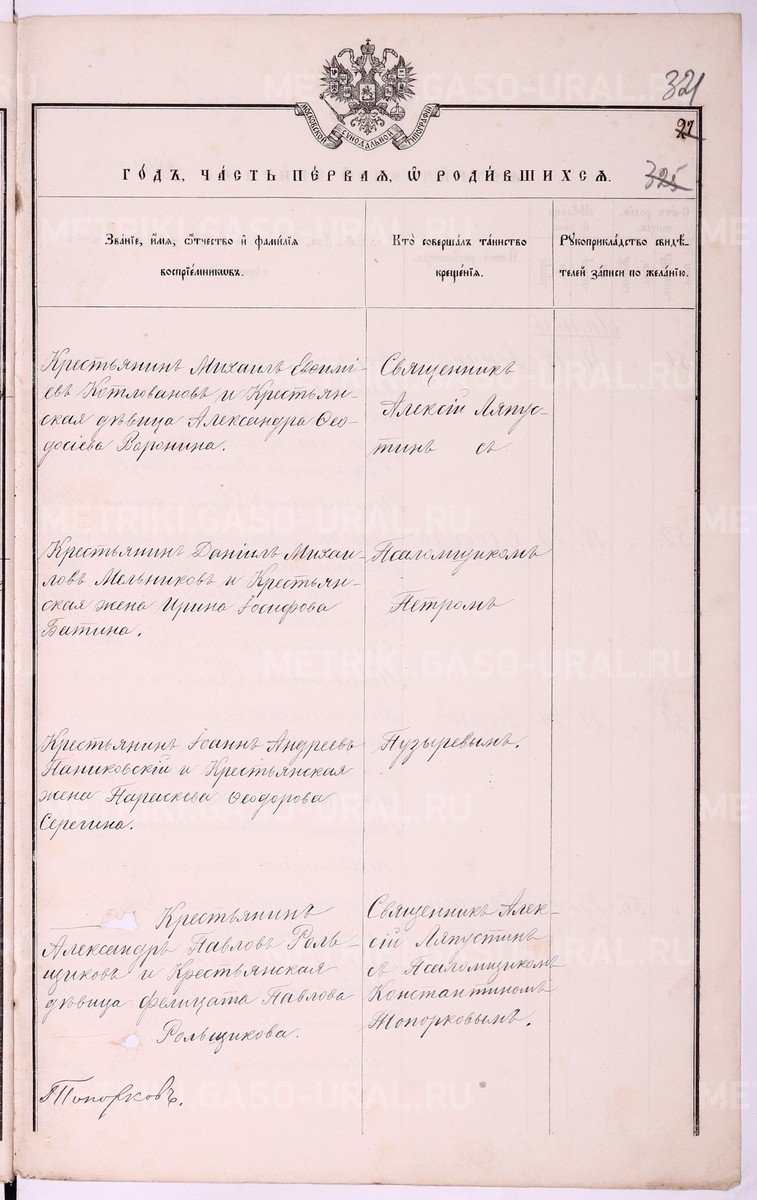 321
МОСКОВСКОЙ СѴНОДАЛЬНОЙ ТИПОГРАФІИ
21
325
ГО́ДЪ, ЧА́СТЬ ПЕ́РВАЯ, Ѽ РОДИ́ВШИХСЯ.
Зва́нїе, и́мя, ѻ҆́тчество и҆ фами́лїя
воспрїе́мникѡвъ.
Кто̀ соверша́лъ та́инство
креще́нїя.
Рꙋкоприкла́дство свидѣ́-
телей за́писи по жела́нїю.
Крестьянинъ Михаилъ Евѳимі-
евъ Котловановъ и Крестьян-
ская дѣвица Александра Ѳео-
досіева Воронина.
Священникъ
Алексій Ляпус-
тинъ съ
Крестьянинъ Даніилъ Михаи-
ловъ Мельниковъ и Крестьян-
ская жена Ирина Іосифова
Батина.
Псаломщикомъ
Петромъ
Крестьянинъ Іоаннъ Андреевъ
Паниковскій и Крестьянская
жена Параскева Ѳеодорова
Серегина.
Пузыревымъ.
Крестьянинъ
Александръ Павловъ Роль-
щиковъ и Крестьянская
дѣвица Фелицата Павлова
Рольщикова.
Священникъ Алек-
сій Ляпустинъ
съ Псаломщикомъ
Константиномъ
Топорковымъ.
Топорковъ.
METRIKI.GASO-URAL.RU